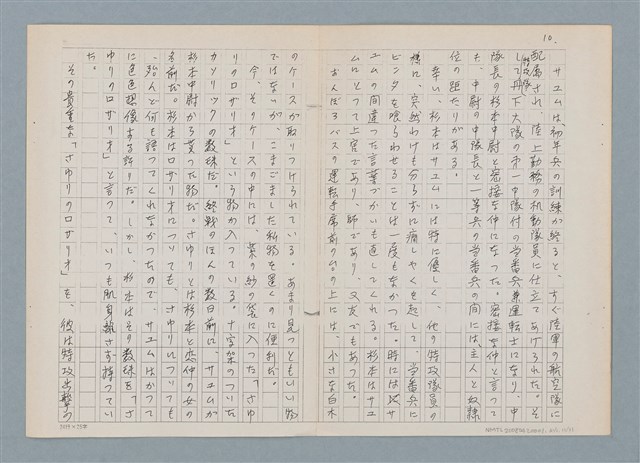 10.
サユムは、初年兵の訓練が終ると、すぐ陸軍の航空隊に
配属され、陸上勤務の機動隊員に仕立てあげられた。そ
して丹下大隊の第一中隊付の当番兵兼運転士になり、中
隊長の杉本中尉と密接な仲になった。密接な仲と言って
も、中尉の中隊長と一等兵の当番兵の間には、主人と奴隷
位の距たりがある。
幸い、杉本はサユムには特に優しく、他の特攻隊員の
様に、突然わけも分らずに癇しゃくを起して、当番兵に
ビンタを喰らわせることは一度もなかった。時にはサ
ユムの間違った言葉づかいも直してくれる。杉本はサユ
ムにとって上官であり、師であり、又友でもあった。
おんぼろバスの運転手席前の台の上には、小さな白木
のケースが取りつけられている。あまり見つともいい物
ではないが、こまごまとした私物を置くのに便利だ。
今、そのケースの中には、紫の紗の袋に入った「さゆ
りのロザリオ」という物が入っている。十字架のついた
カソリックの数珠だ。終戦のほんの数日前に、サユムが
杉本中尉から貰った物だ。さゆりとは杉本と恋仲の女の
名前だ。杉本はロザリオについても、さゆりについても
、殆んど何も語ってくれなかったので、サユムはかって
に色色想像する許りだ。しかし、杉本はその数珠を「さ
ゆりのロザリオ」と言って、いつも肌身離さず持ってい
た。
その貴重な「さゆりのロザリオ」を、彼は特攻出撃の